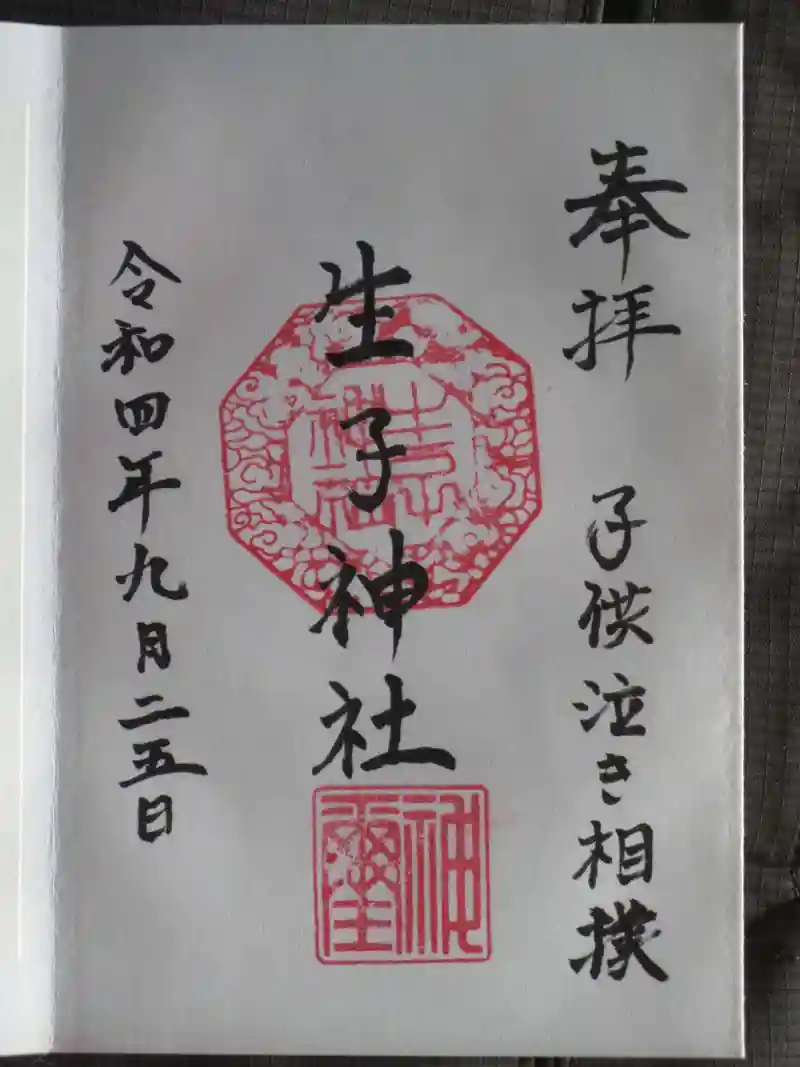 奉拝 子供泣き相撲
生子神社
令和四年九月二五日
神璽